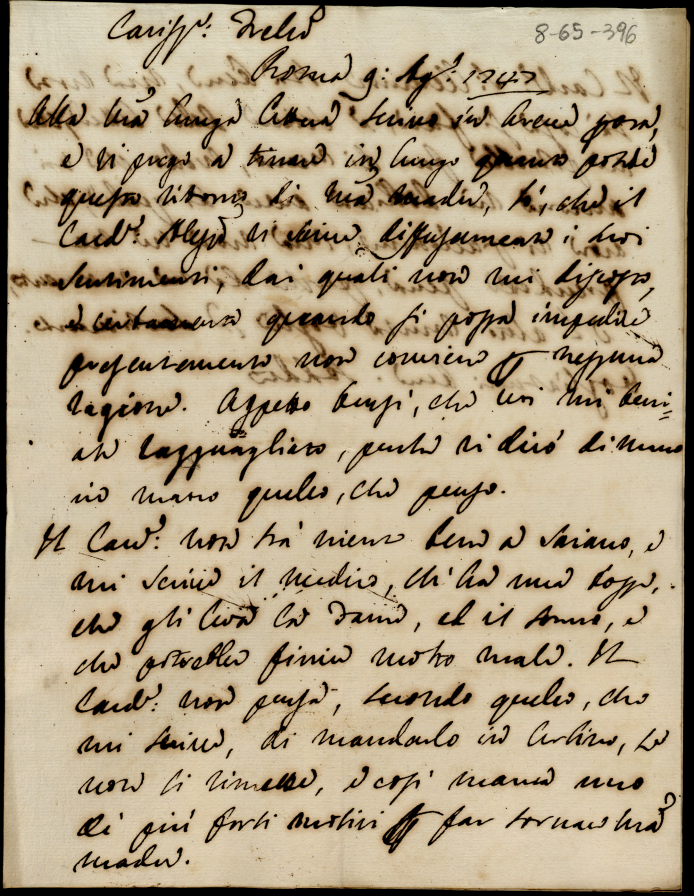 8-65-396
Cariss.º: Frello
Roma 9: Ag.º: 1747
Alla v̄rā lunga lettera scrivo in breve prosa,
e vi prego a tenere in lungo quanto potete
questo ritorno di v̄rā madre, fà, che il
Card.º: Aless.º vi scriva diffusamente i suoi
sentimenti, dai quali non mi discosto,
e certamente quando si possa impedire
presentemente non conviene p nessuna
ragione. Aspetto bensì, che voi mi teni-
ate ragguagliato, perche vi dirò di mano
in mano quello, che penso.
Il Card.º: non stà niente bene a Soriano, e
mi scrive il medico, ch'ha una tosse,
che gli leva la fame, ed il sonno, e
che potrebbe finire molto male. Il
Card.º: non pensa, secondo quello, che
mi scrive, di mandarlo in Urbino, se
non si rimette, e così manca uno
dei più forti motivi p far tornare v̄rā
madre.